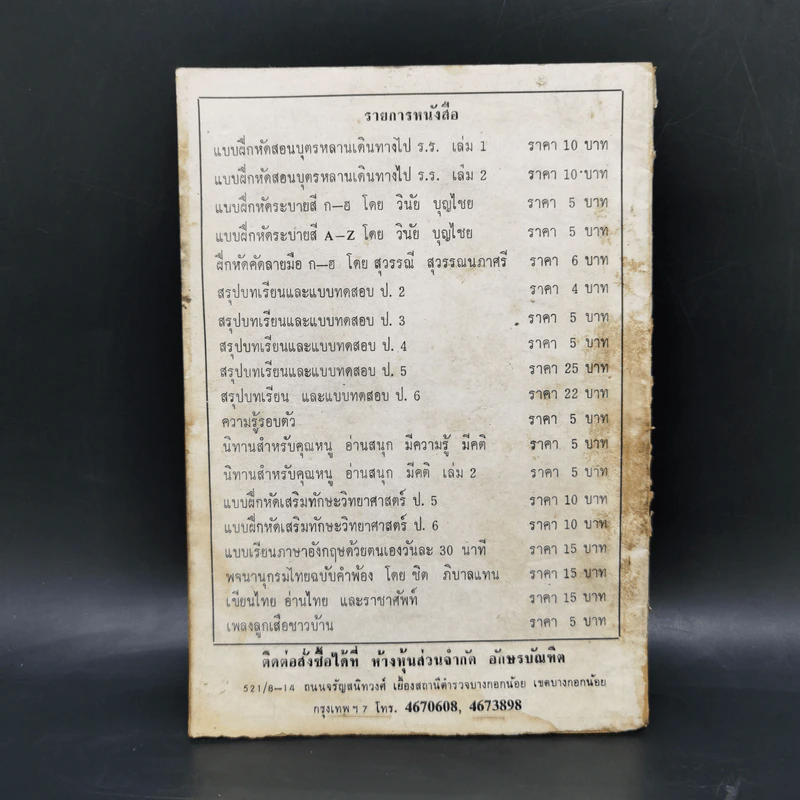 รายการหนังสือ
แบบฝึกหัดสอนบุตรหลานเดินทางไป ร.ร. เล่ม 1 ราคา 10 บาท
แบบฝึกหัดสอนบุตรหลานเดินทางไป ร.ร. เล่ม 2 ราคา 10 บาท
แบบฝึกหัดระบายสี ก–ฮ โดย วินัย บุญไชย ราคา 5 บาท
แบบฝึกหัดระบายสี A–Z โดย วินัย บุญไชย ราคา 5 บาท
ฝึกหัดคัดลายมือ ก–ฮ โดย สุวรรณี สุวรรณนภาศรี ราคา 6 บาท
สรุปบทเรียนและแบบทดสอบ ป. 2 ราคา 4 บาท
สรุปบทเรียนและแบบทดสอบ ป. 3 ราคา 5 บาท
สรุปบทเรียนและแบบทดสอบ ป. 4 ราคา 5 บาท
สรุปบทเรียนและแบบทดสอบ ป. 5 ราคา 25 บาท
สรุปบทเรียน และแบบทดสอบ ป. 6 ราคา 22 บาท
ความรู้รอบตัว ราคา 5 บาท
นิทานสำหรับคุณหนู อ่านสนุก มีความรู้ มีคติ ราคา 5 บาท
นิทานสำหรับคุณหนู อ่านสนุก มีคติ เล่ม 2 ราคา 5 บาท
แบบฝึกหัดเสริมทักษะวิทยาศาสตร์ ป. 5 ราคา 10 บาท
แบบฝึกหัดเสริมทักษะวิทยาศาสตร์ ป. 6 ราคา 10 บาท
แบบเรียนภาษาอังกฤษด้วยตนเองวันละ 30 นาที ราคา 15 บาท
พจนานุกรมไทยฉบับคำพ้อง โดย ชิต ภิบาลแทน ราคา 15 บาท
เขียนไทย อ่านไทย และราชาศัพท์ ราคา 15 บาท
เพลงลูกเสือชาวบ้าน ราคา 5 บาท
ติดต่อสั่งซื้อได้ที่ ห้างหุ้นส่วนจำกัด อักษรบัณฑิต
521/8–14 ถนนจรัญสนิทวงศ์ เยื้องสถานีตำรวจบางกอกน้อย เขตบางกอกน้อย
กรุงเทพฯ 7 โทร. 4670608, 4673898